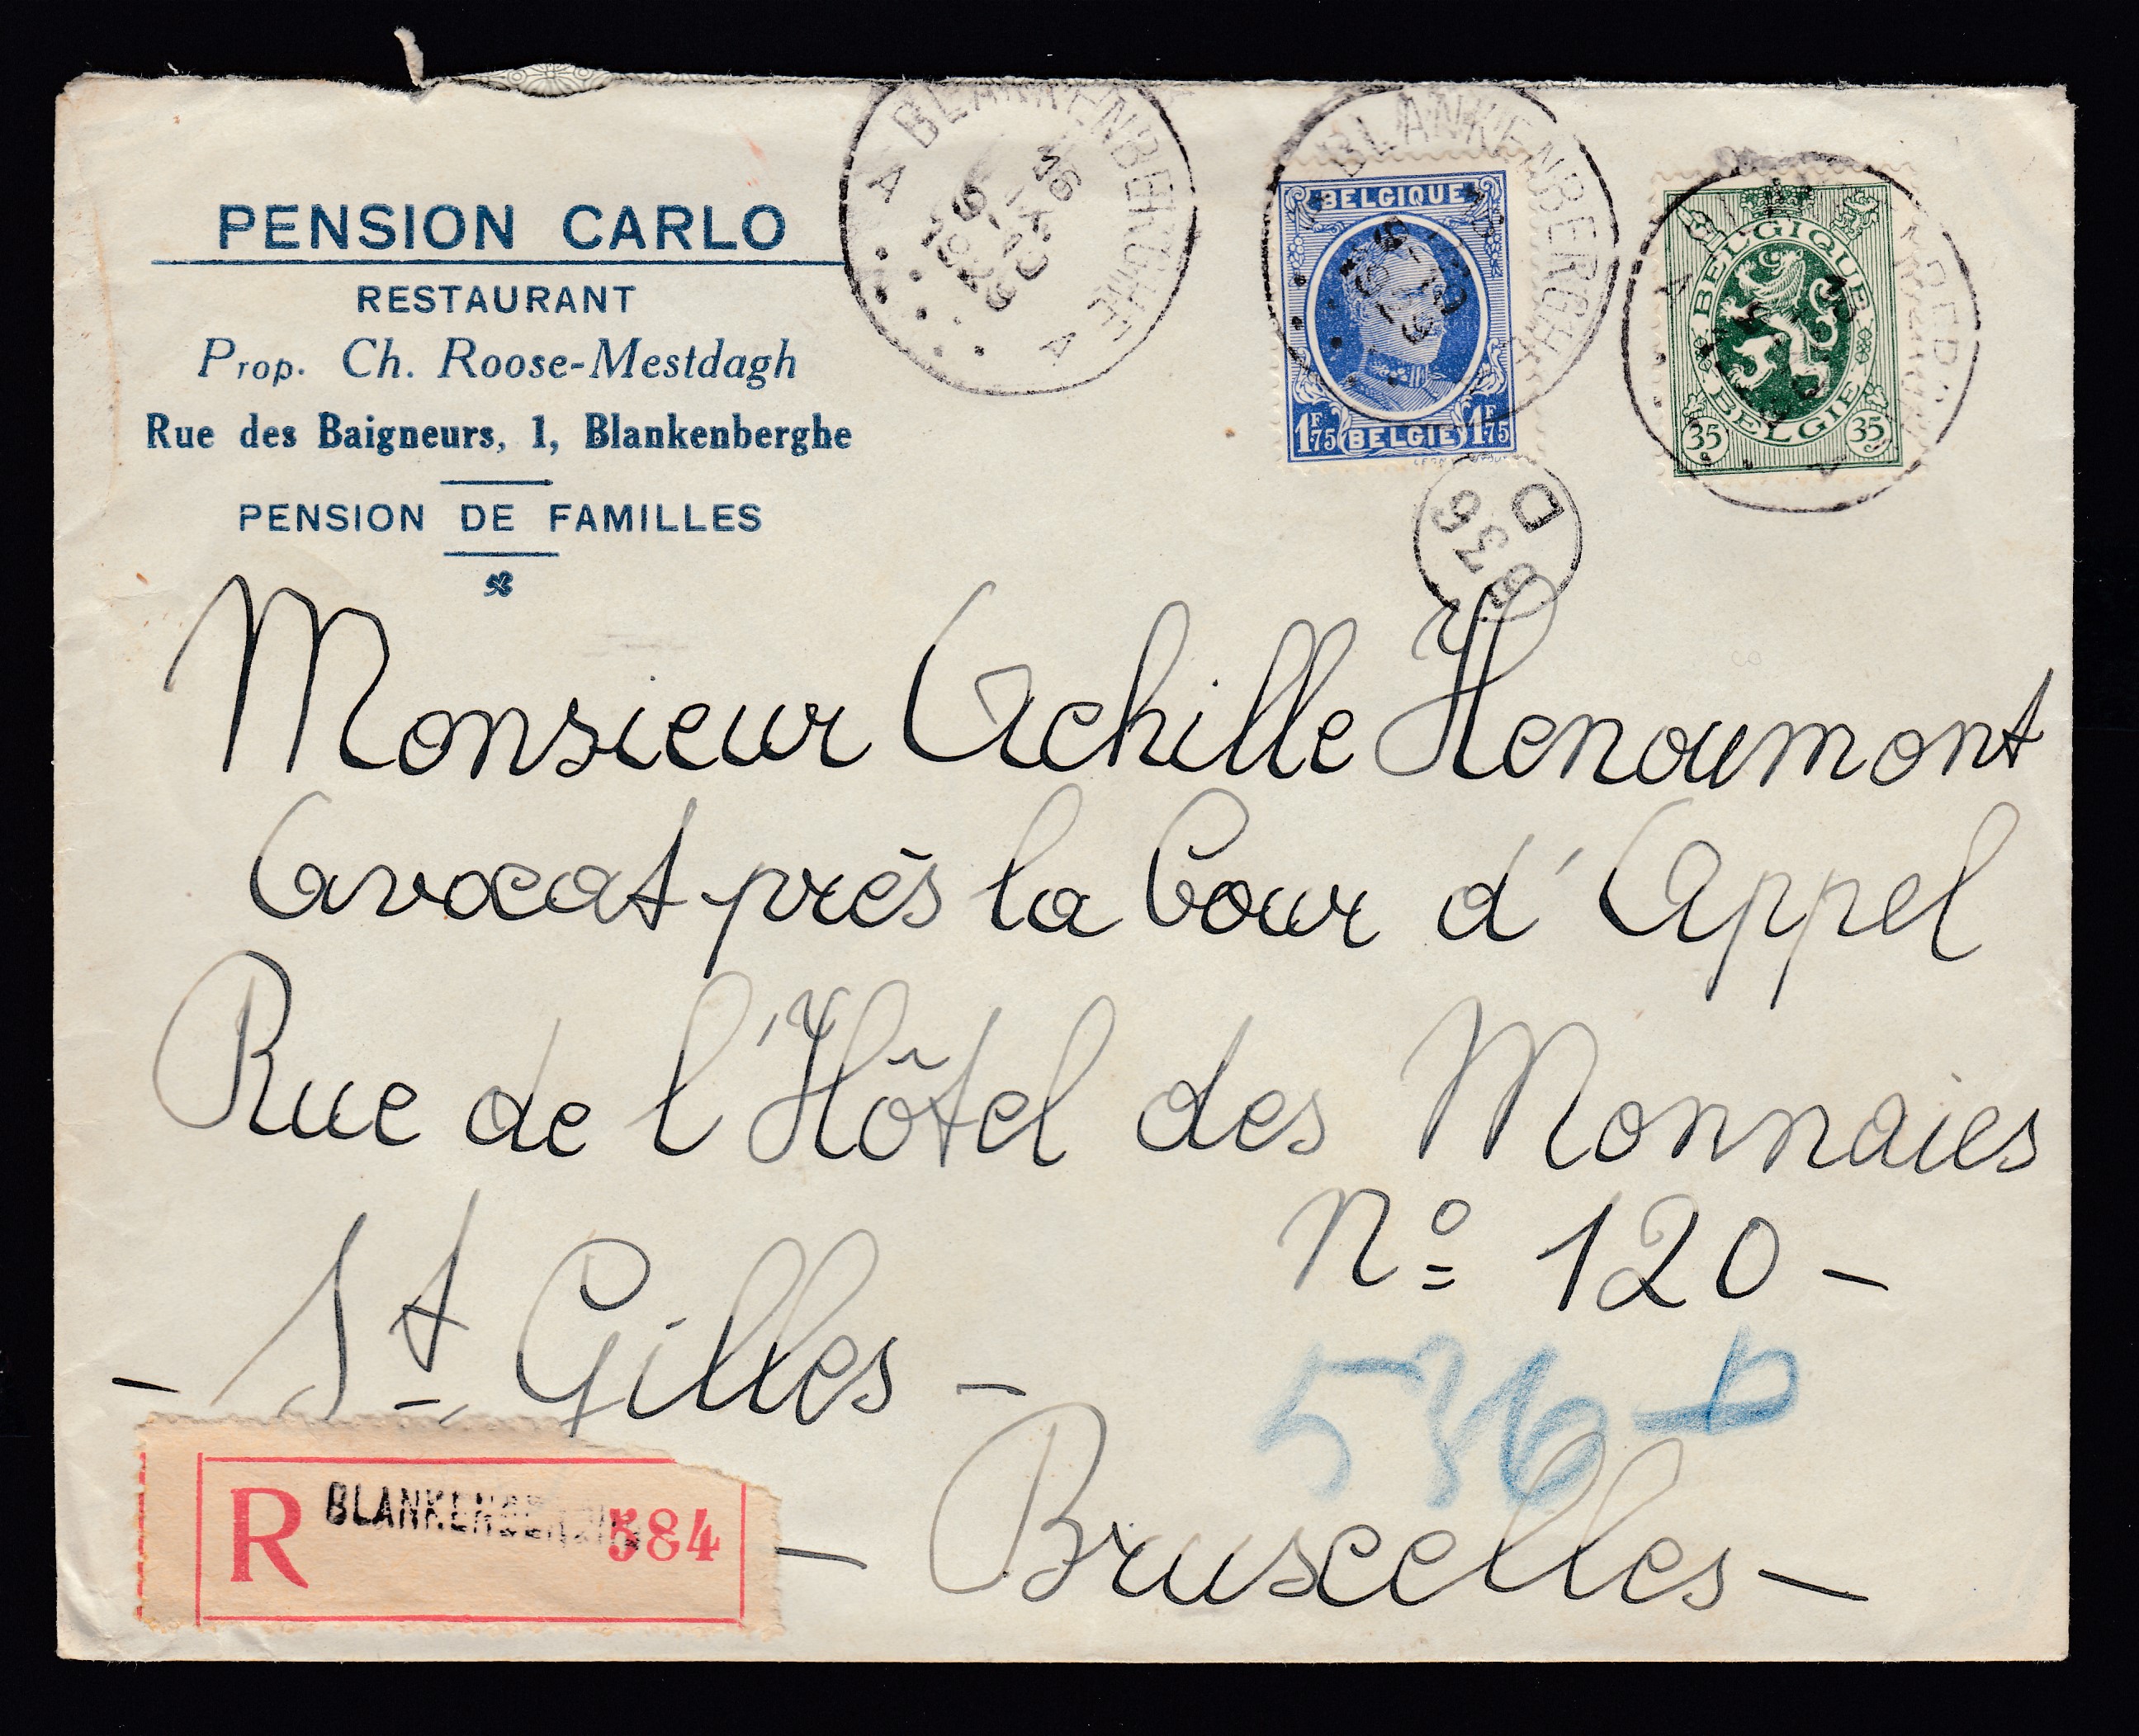 PENSION CARLO
RESTAURANT
Prop. Ch. Roose-Mestdagh
Rue des Baigneurs, 1, Blankenberghe
PENSION DE FAMILLES
A BLANKENBERGHE A
1929
BLANKENBERGHE
BELGIQUE
1F75 BELGIË 1F75
BELGIQUE
BELGIE
35 35
D
Monsieur Achille Henoumont
Avocat près la Cour d'Appel
Rue de l'Hôtel des Monnaies
No 120 -
- St Gilles -
536 D
R BLANKENBERGHE 584
- Bruxelles -